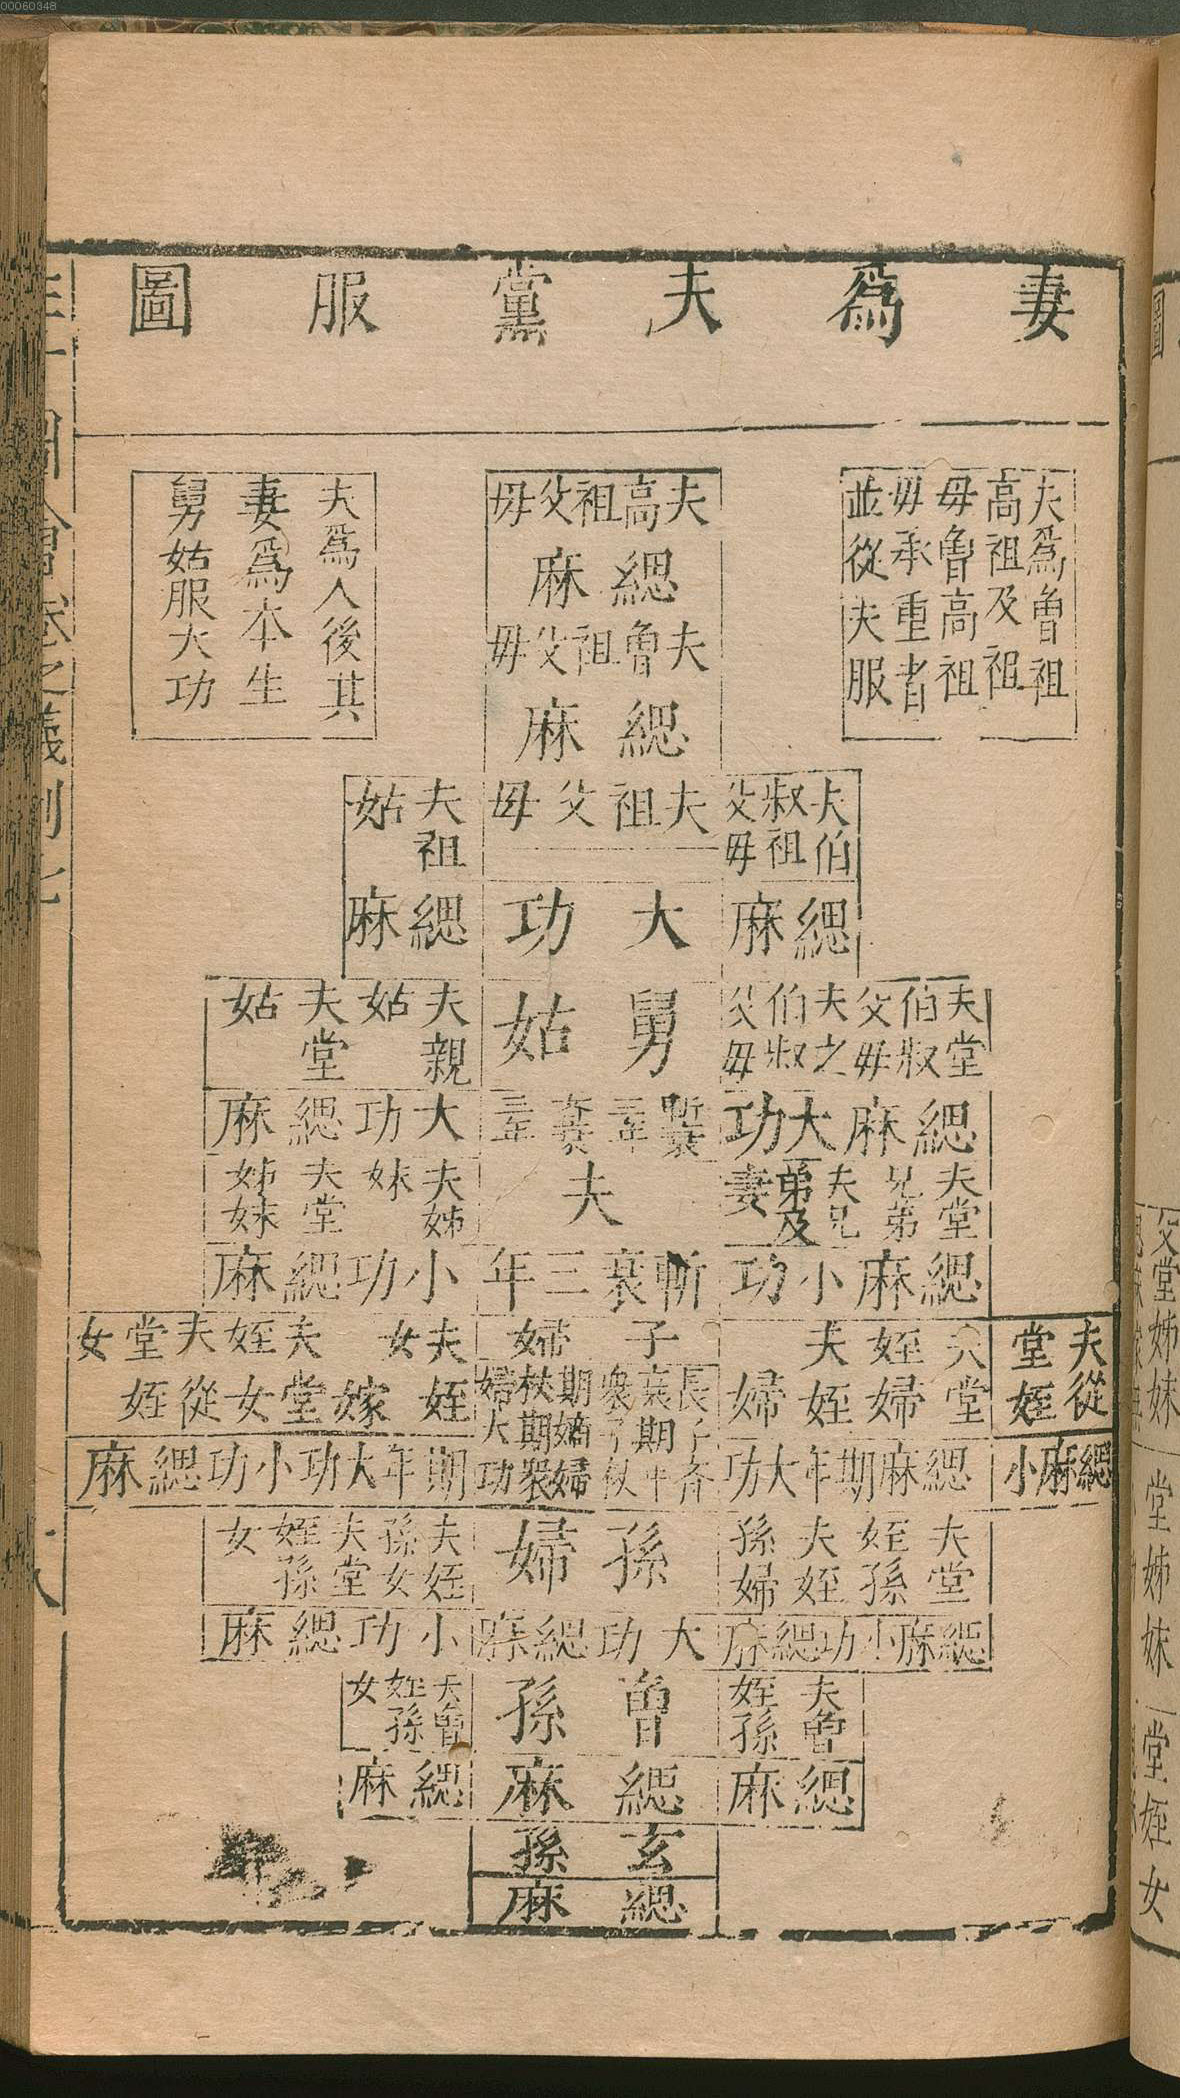 00060348
妻爲夫黨服圖
夫爲曾祖
高祖及祖
母曾高祖
母承重者
並從夫服
夫高祖父母
緦麻
夫曾祖父母
緦麻
夫爲人後其
妻爲本生
舅姑服大功
夫伯
叔祖
父母
緦麻
夫祖父母
大功
夫祖
姑
緦麻
夫堂
伯叔
父母
緦麻
夫之
伯叔
父母
大功
舅姑
斬衰
三年
齊衰
三年
夫親
姑
大功
夫堂
姑
緦麻
夫堂
兄弟
緦麻
夫兄
弟及
妻
小功
夫
斬衰三年
夫姊
妹
小功
夫堂
姊妹
緦麻
夫從
堂姪
緦麻小
夫堂
姪婦
緦麻
夫姪
婦
期年大功
子婦
長子齊
衰期年
衆子仗
期嫡婦
杖期衆
婦大功
夫姪
女嫁
期年大功
夫堂
姪女
小功
夫堂從
女姪
緦麻
夫堂
姪孫
緦麻
夫姪
孫婦
小功緦麻
孫婦
大功緦麻
夫姪
孫女
小功
夫堂
姪孫
女
緦麻
夫曾
姪孫
緦麻
曾孫
緦麻
夫曾
姪孫
女
緦麻
玄孫
緦麻